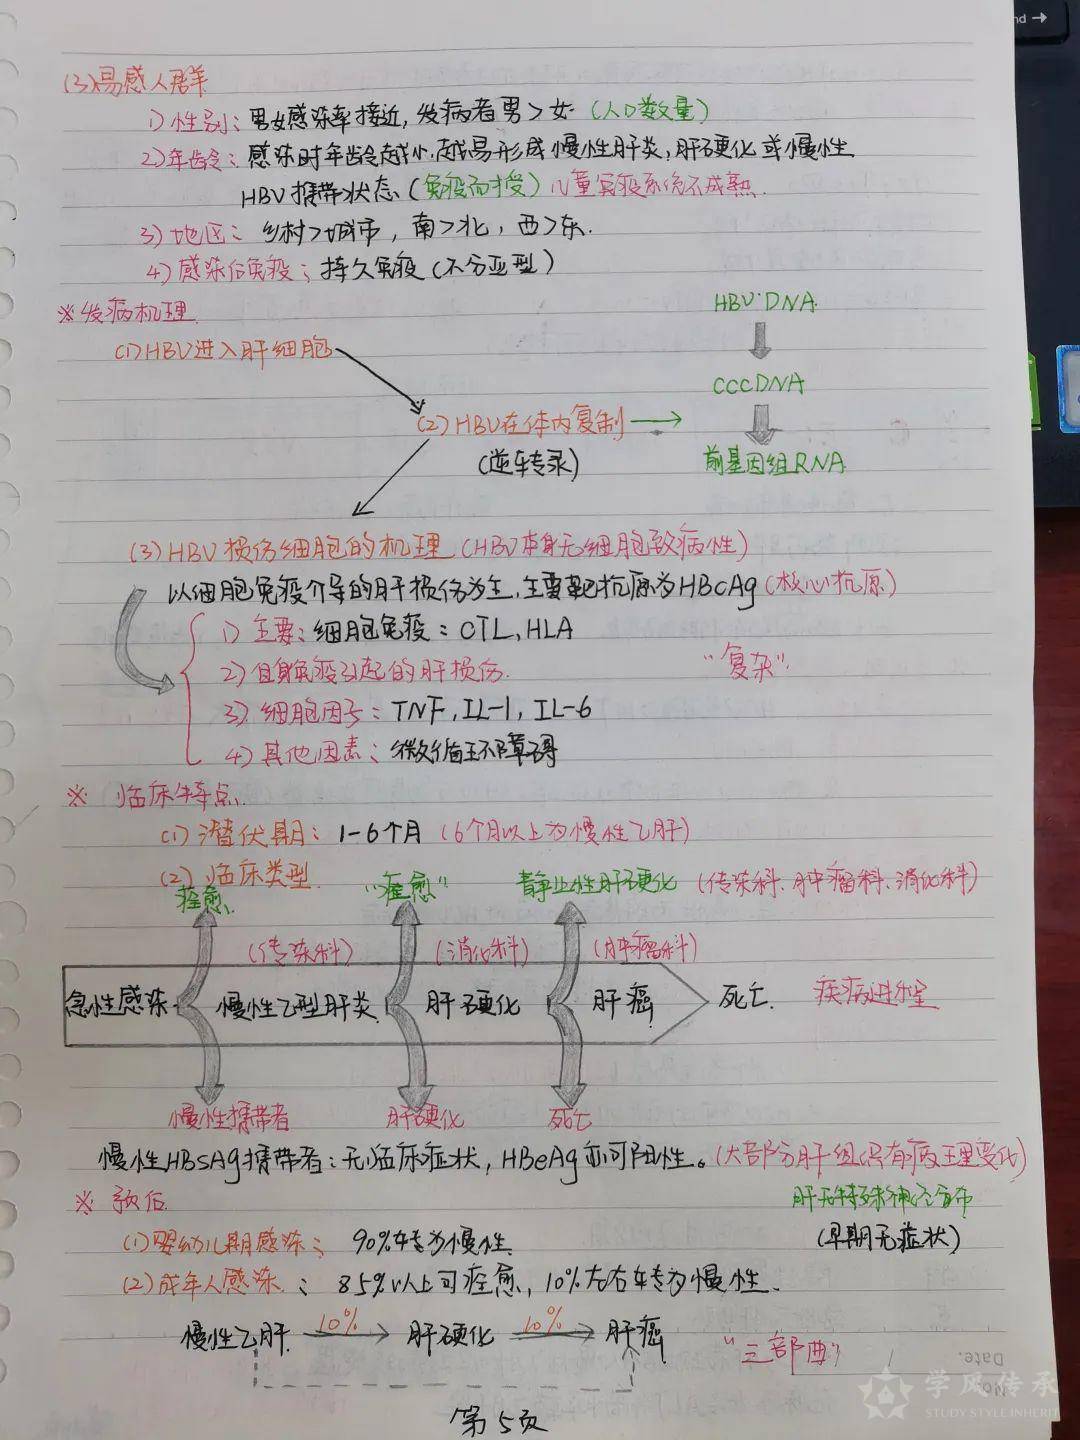 (3)易感人群
1)性别：男女感染率接近，发病者男>女（人口数量）
2)年龄：感染时年龄越小，越易形成慢性肝炎，肝硬化或慢性
HBV携带状态（免疫耐受）儿童免疫系统不成熟.
3)地区：乡村>城市，南>北，西>东.
4)感染后免疫：持久免疫(不分亚型)
※发病机理
HBV·DNA
(1)HBV进入肝细胞
cccDNA
(2)HBV在体内复制
(逆转录)
前基因组RNA
(3)HBV损伤细胞的机理(HBV本身无细胞致病性)
以细胞免疫介导的肝损伤为主，主要靶抗原为HBcAg(核心抗原)
1)主要：细胞免疫：CTL,HLA
2)自身免疫引起的肝损伤.
"复杂"
3)细胞因子：TNF,IL-1,IL-6
4)其他因素：微循环障碍
※ 临床特点
(1)潜伏期：1-6个月(6个月以上为慢性乙肝)
(2)临床类型
痊愈 "痊愈" 静止性肝硬化(传染科、肿瘤科、消化科)
(传染科) (消化科) (肿瘤科)
急性感染 慢性乙型肝炎 肝硬化 肝癌 死亡. 疾病进程
慢性携带者 肝硬化 死亡
慢性HBsAg携带者：无临床症状，HBeAg亦可阳性。(大部分肝组织有病理变化)
※ 预后
肝无特殊神经分布
(早期无症状)
(1)婴幼儿期感染：90%转为慢性.
(2)成年人感染：85%以上可痊愈，10%左右转为慢性.
慢性乙肝 10% 肝硬化 10% 肝癌 "三部曲"
Date.
No.
学风传承
STUDY STYLE INHERIT
第5页